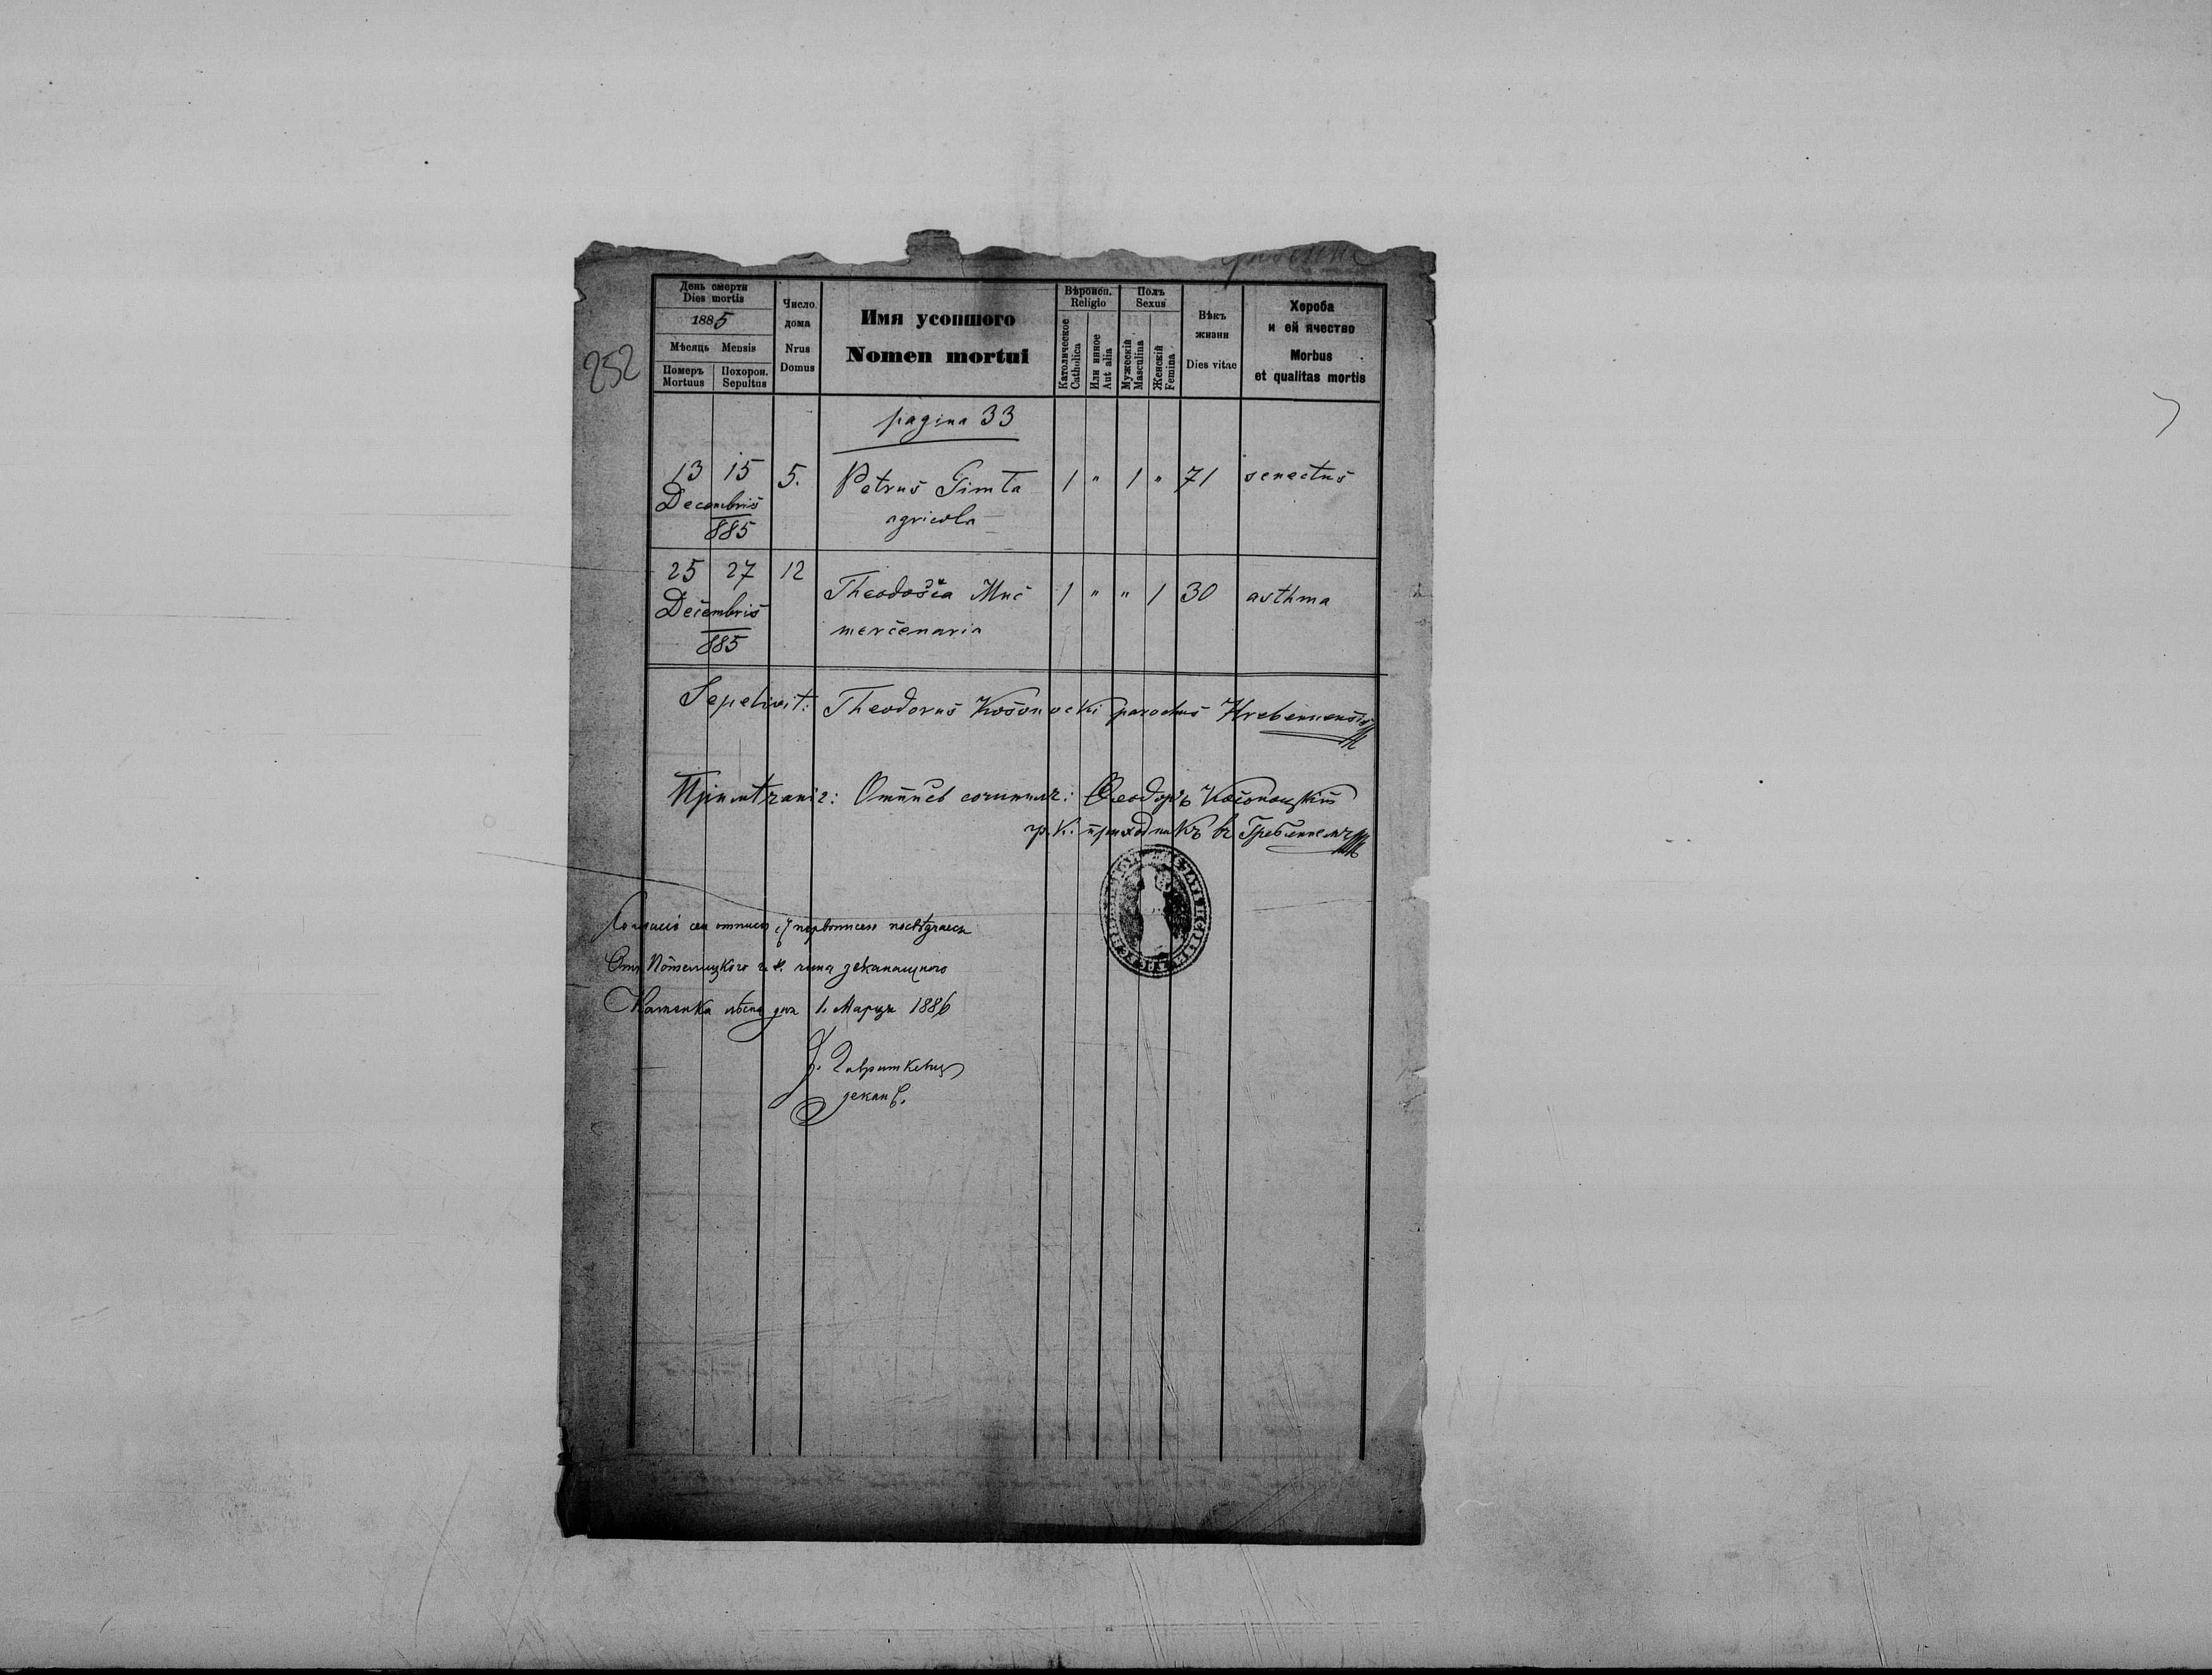 252
День смерти
Dies mortis
1885
Мѣсяць Mensis
Померъ Похорон.
Mortuus Sepultus
Число
дома
Nrus
Domus
Имя усопшого
Nomen mortui
Вѣроисп.
Religio
Католическое
Catholica
Или инное
Aut alia
Полъ
Sexus
Мужескій
Masculina
Женскій
Femina
Вѣкъ
жизни
Dies vitae
Хороба
и ей ячество
Morbus
et qualitas mortis
pagina 33
13 15 5. Petrus Gimta 1 " 1 " 71 senectus
Decembris agricola
885
25 27 12 Theodosia Muc 1 " " 1 30 asthma
Decembris mercenaria
885
Sepelivit: Theodorus Kosonocki parochus Hrebennensis
Примѣчаніе: Отпись сочинилъ: Ѳеодоръ Косоноцкій
гр. к. приходникъ въ Гребенномъ
сей отписи съ первописею посвѣдчаеся
Отъ г. к. чина деканального
Каменка лѣсна дня 1. Марца 1886
деканъ.